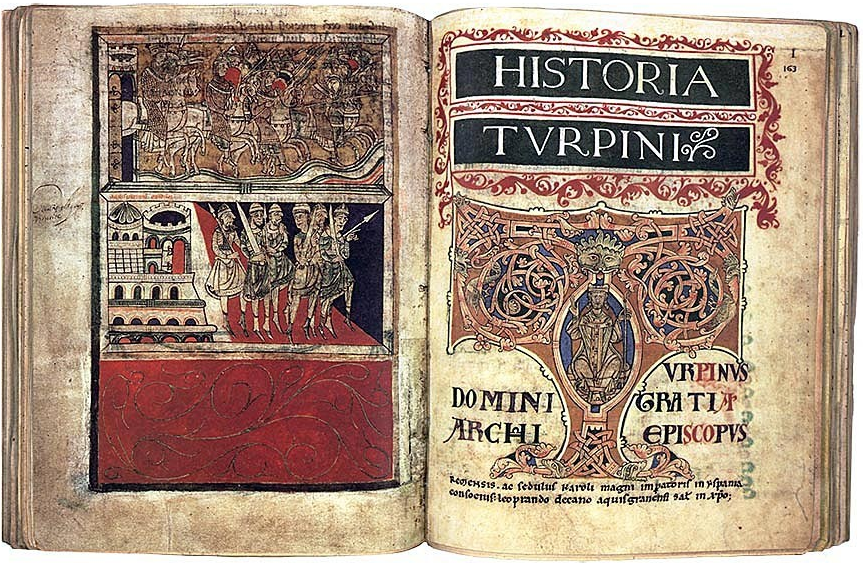 I
163
HISTORIA
TVRPINI
TVRPINVS
DOMINI GRATIA
ARCHI EPISCOPVS
REMENSIS. ac sedulus Karoli magni impatoris in yspania
consocius: leoprando decano aquisgranensi sat in xpo;